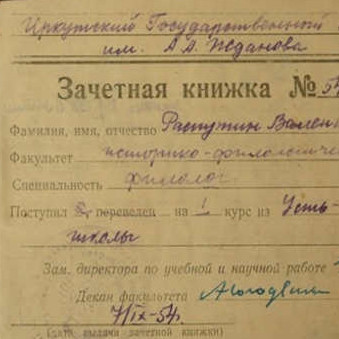 Иркутский Государственный
им. А. А. Жданова
Зачетная книжка № 54
Фамилия, имя, отчество Распутин Вален
Факультет историко-филологиче
Специальность филолог
Поступил переведен на 1 курс из Усть-
школы
Зам. директора по учебной и научной работе
Декан факультета
7/IX-54г.
(дата выдачи зачетной книжки)